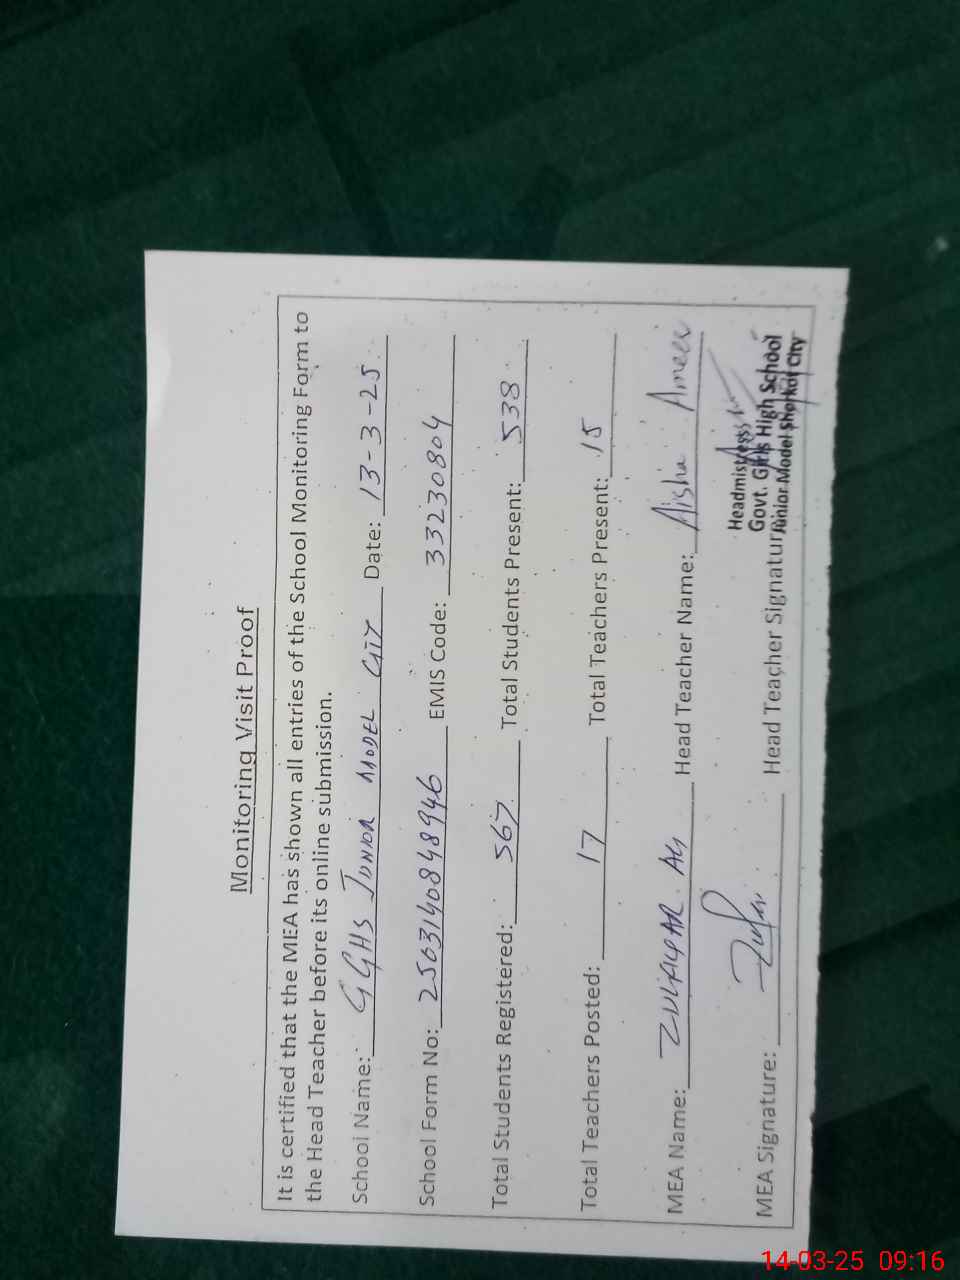 Monitoring Visit Proof
It is certified that the MEA has shown all entries of the School Monitoring Form to
the Head Teacher before its online submission.
School Name: GGHS JUNIOR MODEL CITY Date: 13-3-25
School Form No: 2503140848946 EMIS Code: 33230804
Total Students Registered: 567 Total Students Present: 538
Total Teachers Posted: 17 Total Teachers Present: 15
MEA Name: ZULFIQAR Ali Head Teacher Name: Aisha Ameer
Headmistress
Govt. Girls High School
Junior Model Shorkot City
MEA Signature: Head Teacher Signature
14-03-25 09:16